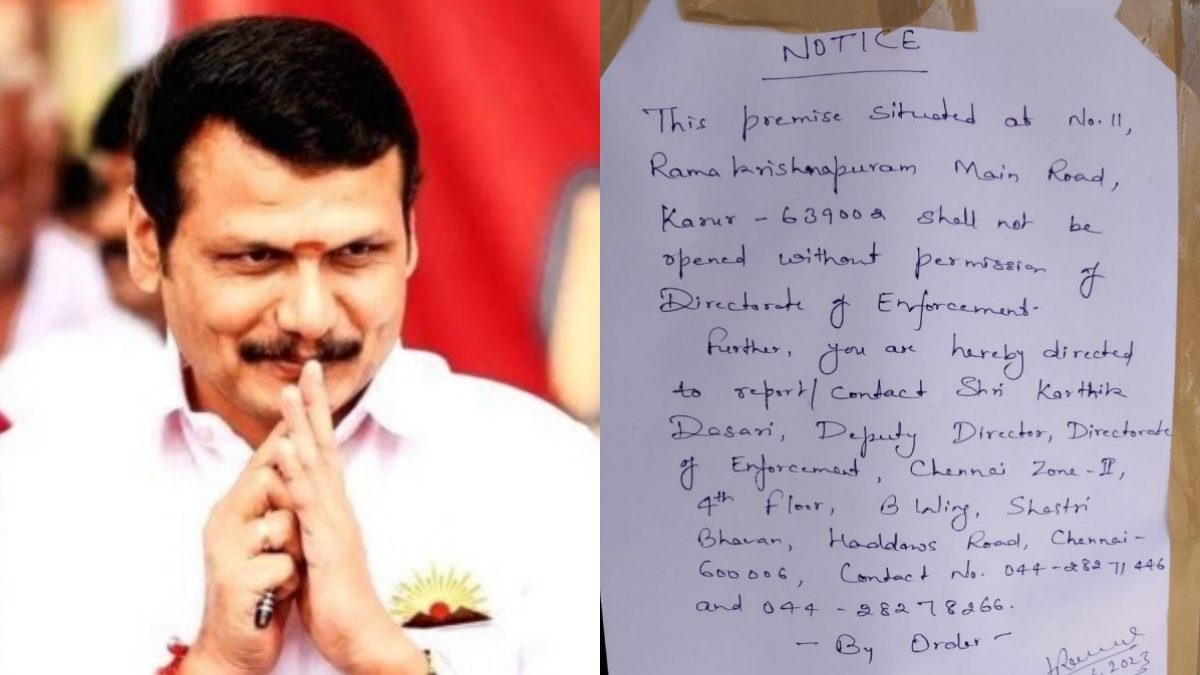 NOTICE
This premise situated at No. 11,
Ramakrishnapuram Main Road,
Karur - 639002 shall not be
opened without permission of
Directorate of Enforcement.
Further, you are hereby directed
to report/contact Shri Karthik
Dasari, Deputy Director, Directorate
of Enforcement, Chennai Zone - II,
4th Floor, B Wing, Shastri
Bhavan, Haddows Road, Chennai -
600006, Contact No. 044-28271446
and 044 - 28278266.
- By Order -
2023